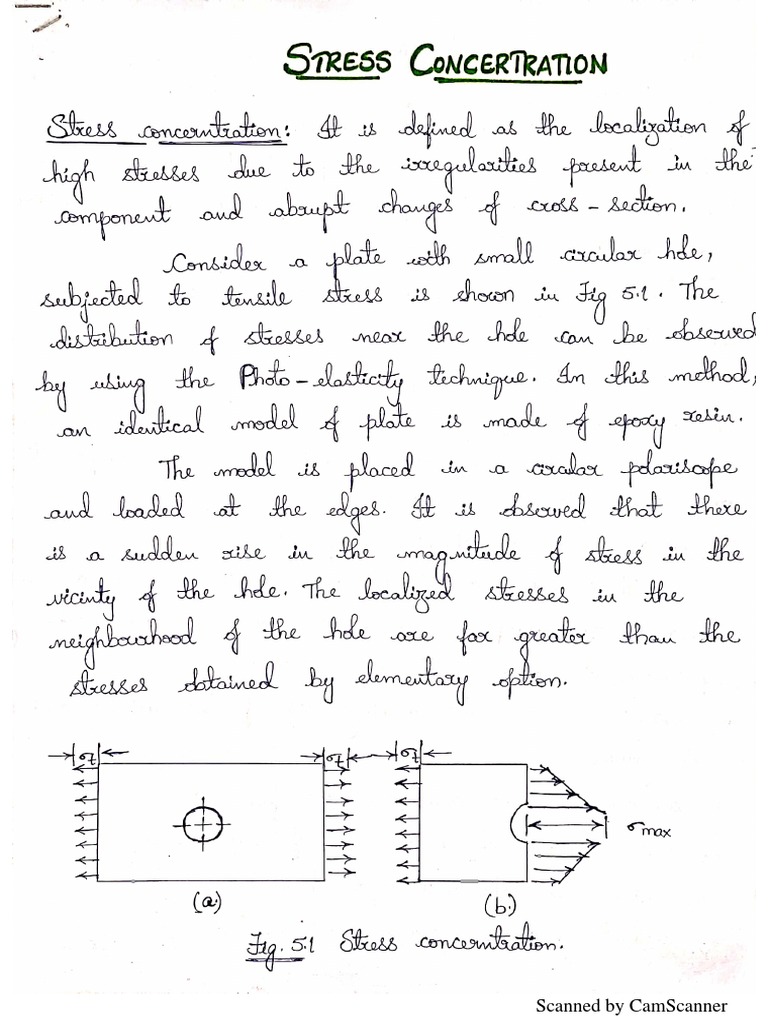 STRESS CONCERTRATION
Stress concerntration: It is defined as the localization of
high stresses due to the irregularities present in the
component and abrupt changes of cross-section.
Consider a plate with small circular hole,
subjected to tensile stress is shown in Fig 5.1. The
distribution of stresses near the hole can be observed
by using the Photo-elasticity technique. In this method,
an identical model of plate is made of epoxy resin.
The model is placed in a circular polariscope
and loaded at the edges. It is observed that there
is a sudden rise in the magnitude of stress in the
vicinty of the hole. The localized stresses in the
neighbourhood of the hole are far greater than the
stresses obtained by elementary option.
σt σt σt
σmax
(a) (b)
Fig. 5.1 Stress concerntration.
Scanned by CamScanner